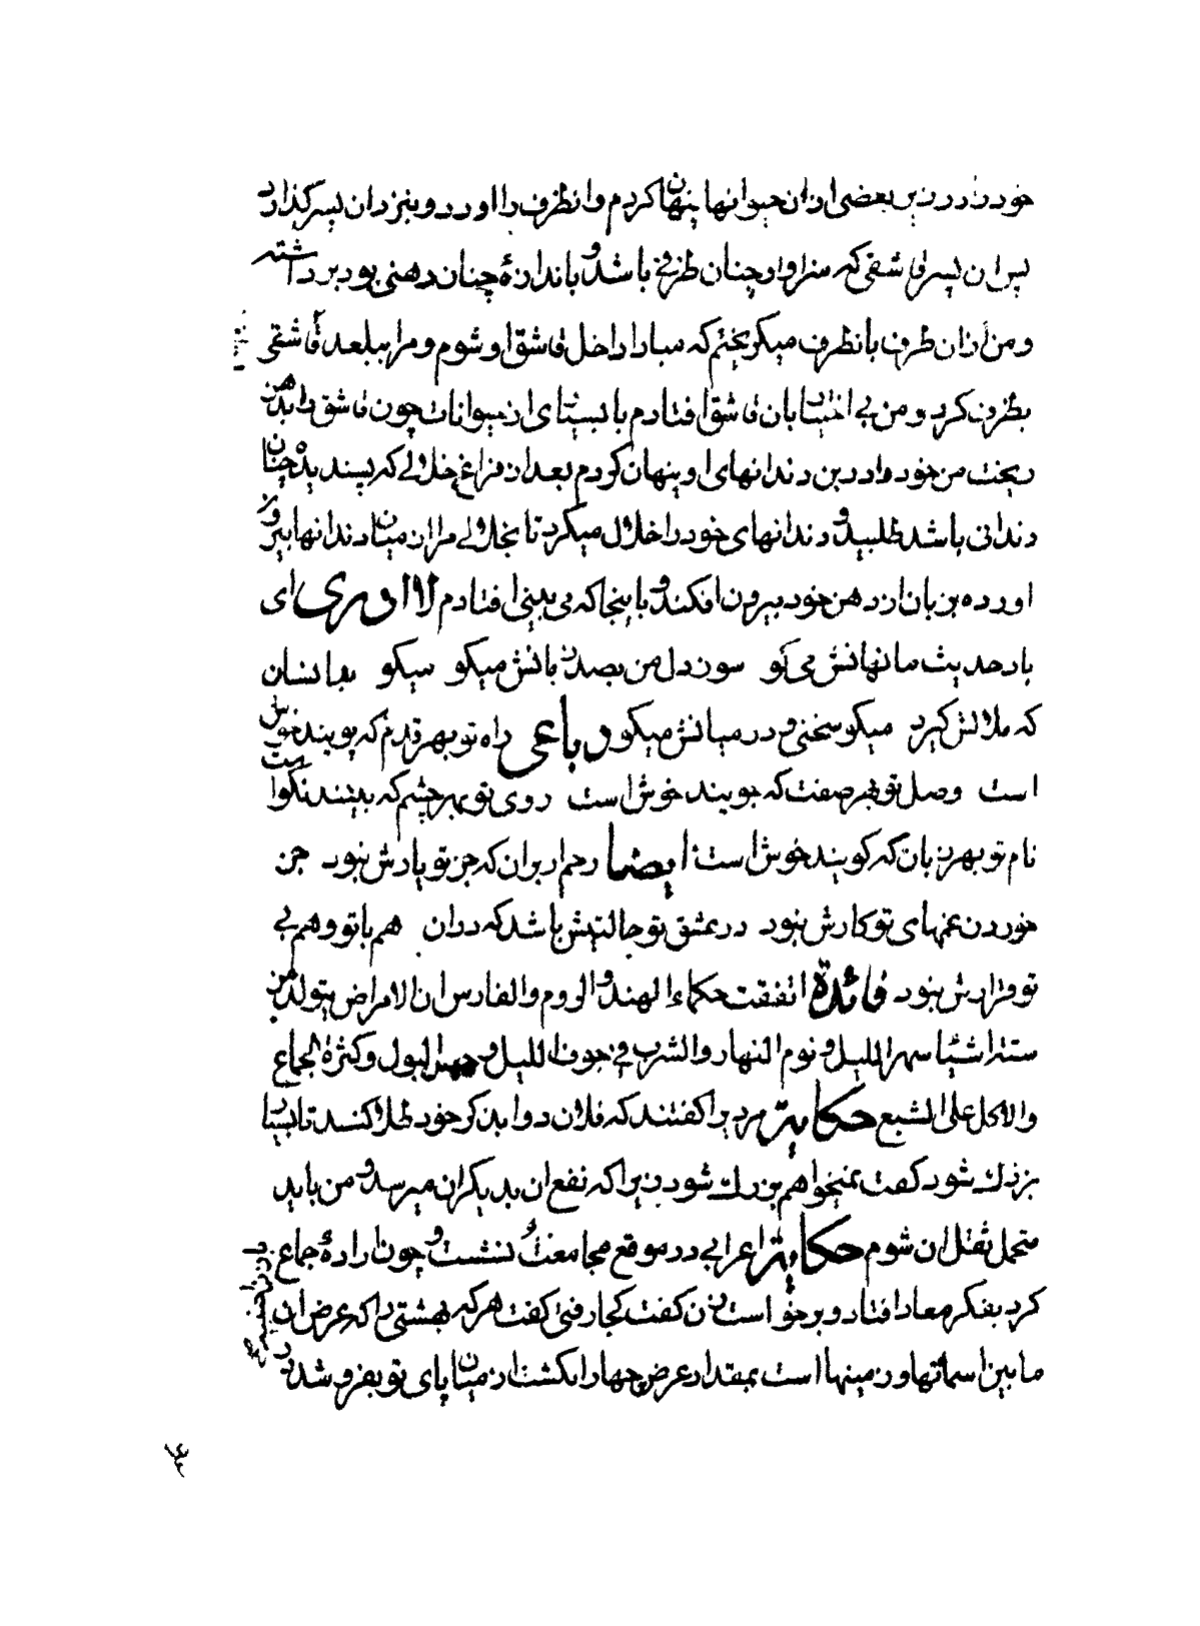 خود را در زیر بعضی از ان حیوانها پنهان کردم و انظرف را اورد و بنزد ان پسر گذارد
پس ان پسر قاشقی که سزاوار چنان ظرفی باشد و باندازهٔ چنان دهنی بود برداشته
و من از ان طرف بانطرف میگریختم که مبادا داخل قاشق او شوم و مرا ببلعد قاشقی
بظرف کرد و من بی اختیار بان قاشق افتادم با بسیاری از حیوانات چون قاشق را بدهن
ریخت من خود را در بن دندانهای او پنهان کردم بعد از فراغ خلالی که پسندیده چنان
دندانی باشد طلبید و دندانهای خود را خلال میکرد تا بخلالی مرا از میان دندانها بیرون
اورده بزبان از دهن خود بیرون افکند و باینجا که می بینی افتادم لا ادری ای
باد حدیث ما نهانش می گو سوز دل من بصد زبانش میگو میگو بدانسان
که ملالش گیرد میگو سخنی و در میانش میگو رباعی راه تو بهر قدم که پویند خوش
است وصل تو بهر صفت که جویند خوش است روی تو بهر چشم که بینند نکوا ست
نام تو بهر زبان که گویند خوش است ایضا رحم ار بران که جز تو یارش نبود جز
خوردن غمهای تو کارش نبود در عشق تو حالتیش باشد که دران هم با تو و هم بی
تو قرارش نبود فائدة اتفقت حکماء الهند و الروم و الفارس ان الامراض یتولد من
ستة اشیا سهر اللیل و نوم النهار و الشرب فی جوف اللیل و حبس البول و کثرة الجماع
و الاکل علی الشبع حکایة مردیرا گفتند که فلان دوا بذکر خود طلا کنید تا بسیار
بزرك شود گفت نمیخواهم بزرك شود زیرا که نفع ان بدیگران میرسد و من باید
متحمل ثقل ان شوم حکایة اعرابی در موقع مجامعت نشست و چون ارادهٔ جماع
کرد بفکر معاد افتاد و برخواست زن گفت کجا رفتی گفت هر که بهشتی را که عرض ان
ما بین اسمانها و زمینها است بمقدار عرض چهار انگشت از میان پای تو بفروشد